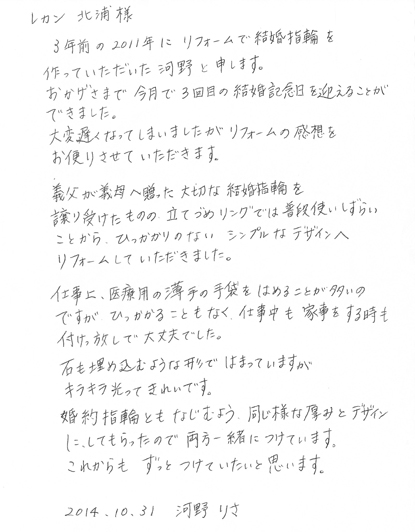 レカン 北浦様
3年前の2011年に リフォームで結婚指輪を
作っていただいた河野と申します。
おかげさまで今月で3回目の結婚記念日を迎えることが
できました。
大変遅くなってしまいましたがリフォームの感想を
お便りさせていただきます。
義父が義母へ贈った大切な結婚指輪を
譲り受けたものの、立てづめリングでは普段使いしずらい
ことから、ひっかかりのない シンプルなデザインへ
リフォームしていただきました。
仕事上、医療用の薄手の手袋をはめることが多いの
ですが ひっかかることもなく、仕事中も 家事をする時も
付けっ放しで大丈夫でした。
石も埋め込むような形で はまっていますが
キラキラ光ってきれいです。
婚約指輪ともなじむよう、同じ様な厚みとデザイン
にしてもらったので両方一緒につけています。
これからも ずっとつけていたいと思います。
2014.10.31 河野 りさ